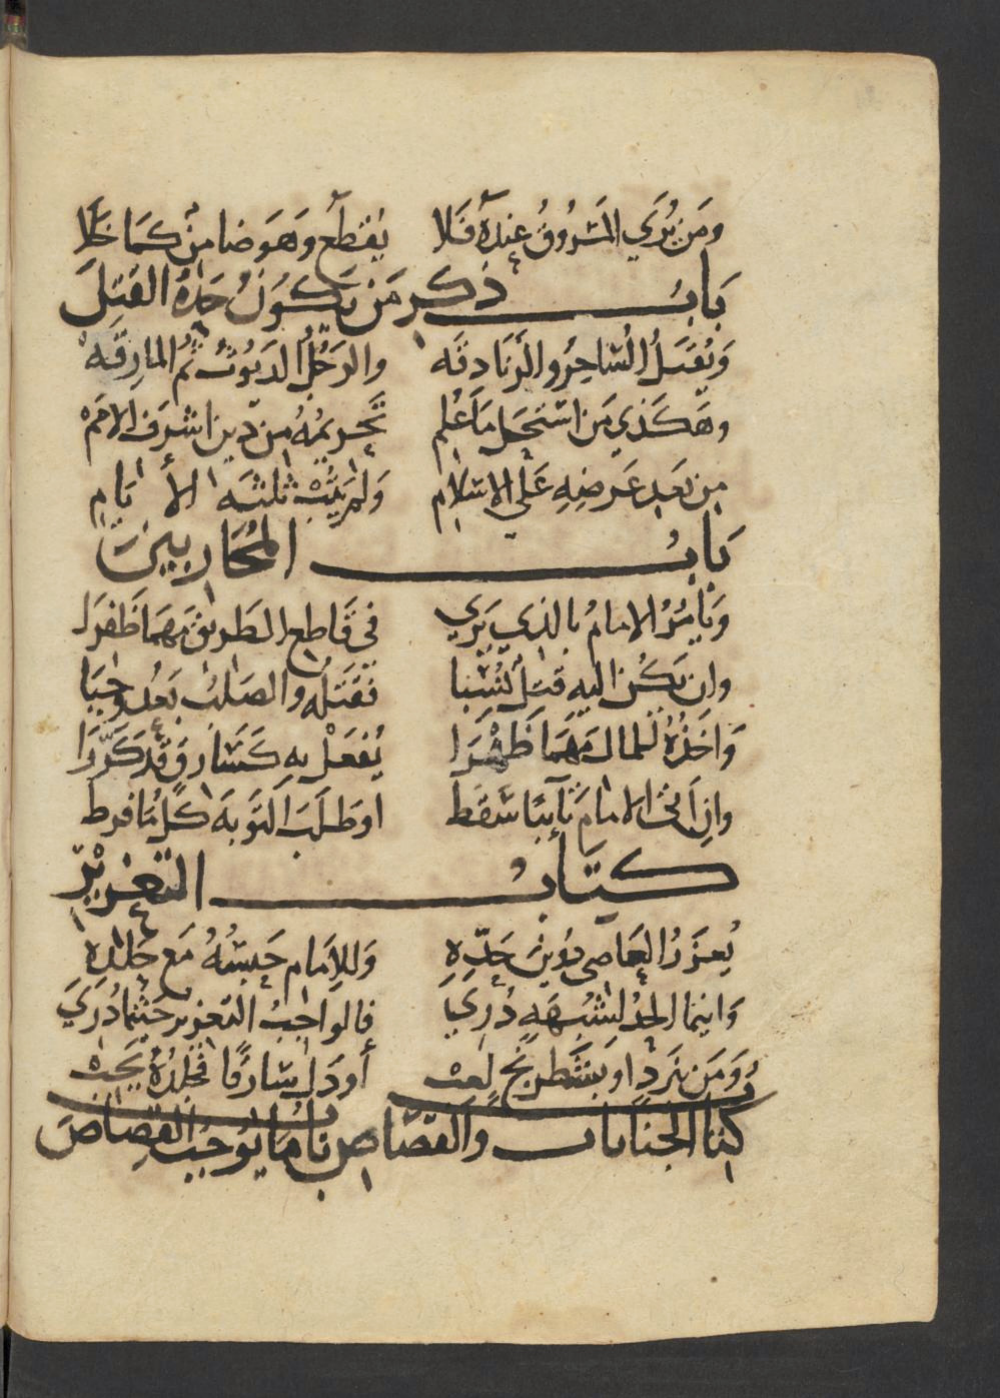 ومَن يُرَي المَسْرُوقُ عِندَهُ فَلا يُقطَع وَهَوَ ضامِنٌ كَمَا خَلَا
بَابُ ذكر مَن يَكُونُ حَدُّهُ القَتِلَ
وَيُقتَلُ السَّاحِرُ والزَنَادقَه والرَجُلُ الدَيُوثُ ثُم المارِقَهْ
وهَكَذي مَن استَحَل مَا عُلِم تَحريمُهُ مِن دّينِ اشرَف الامَمْ
مِن بَعدِ عَرضِهِ عَلَي الاسلامِ وَلمْ يَتُبْ ثلثَه الأ يَامِ
بَابُ المُحَاربينَ
وَيَأمُرُ الامامُ بالذي يَرَي في قَاطِع الطَريق مَهمَا ظَفَرَا
وان يَكُن اليهِ قتلٌ نُسِبَا فقَتلُه والصَلبُ بَعدُ وجبَا
وَاخَذُهُ للمال مَهَمَا ظَهَرَا يُفعَلْ بهِ كَسَارقٍ قَد كَرَّرَا
وانِ اَتَى الامامَ تَآئِبًا سَقَط اوطَلَبَ التَوبَةَ كُل مَا فرط
كتابُ التَعْزِيْرِ
يُعزَرُ العَاصِى دُوينَ حَدِّهِ وَللاِمَام حَبسُهُ مَع جَلدِهِ
وَاينما الحَدُّ لِشُبهَهٍ دُرِيَ فالواجبُ التعزير حَيثُما دُرَيَ
وَمَن بَنَردٍ او بَشَطرنجٍ لَعبْ أودَل سَارقًا فجَلدُهُ يَجبْ
كتابُ الجنايات والقصَاصِ بَابُ مَا يُوجبُ القِصَاصَ